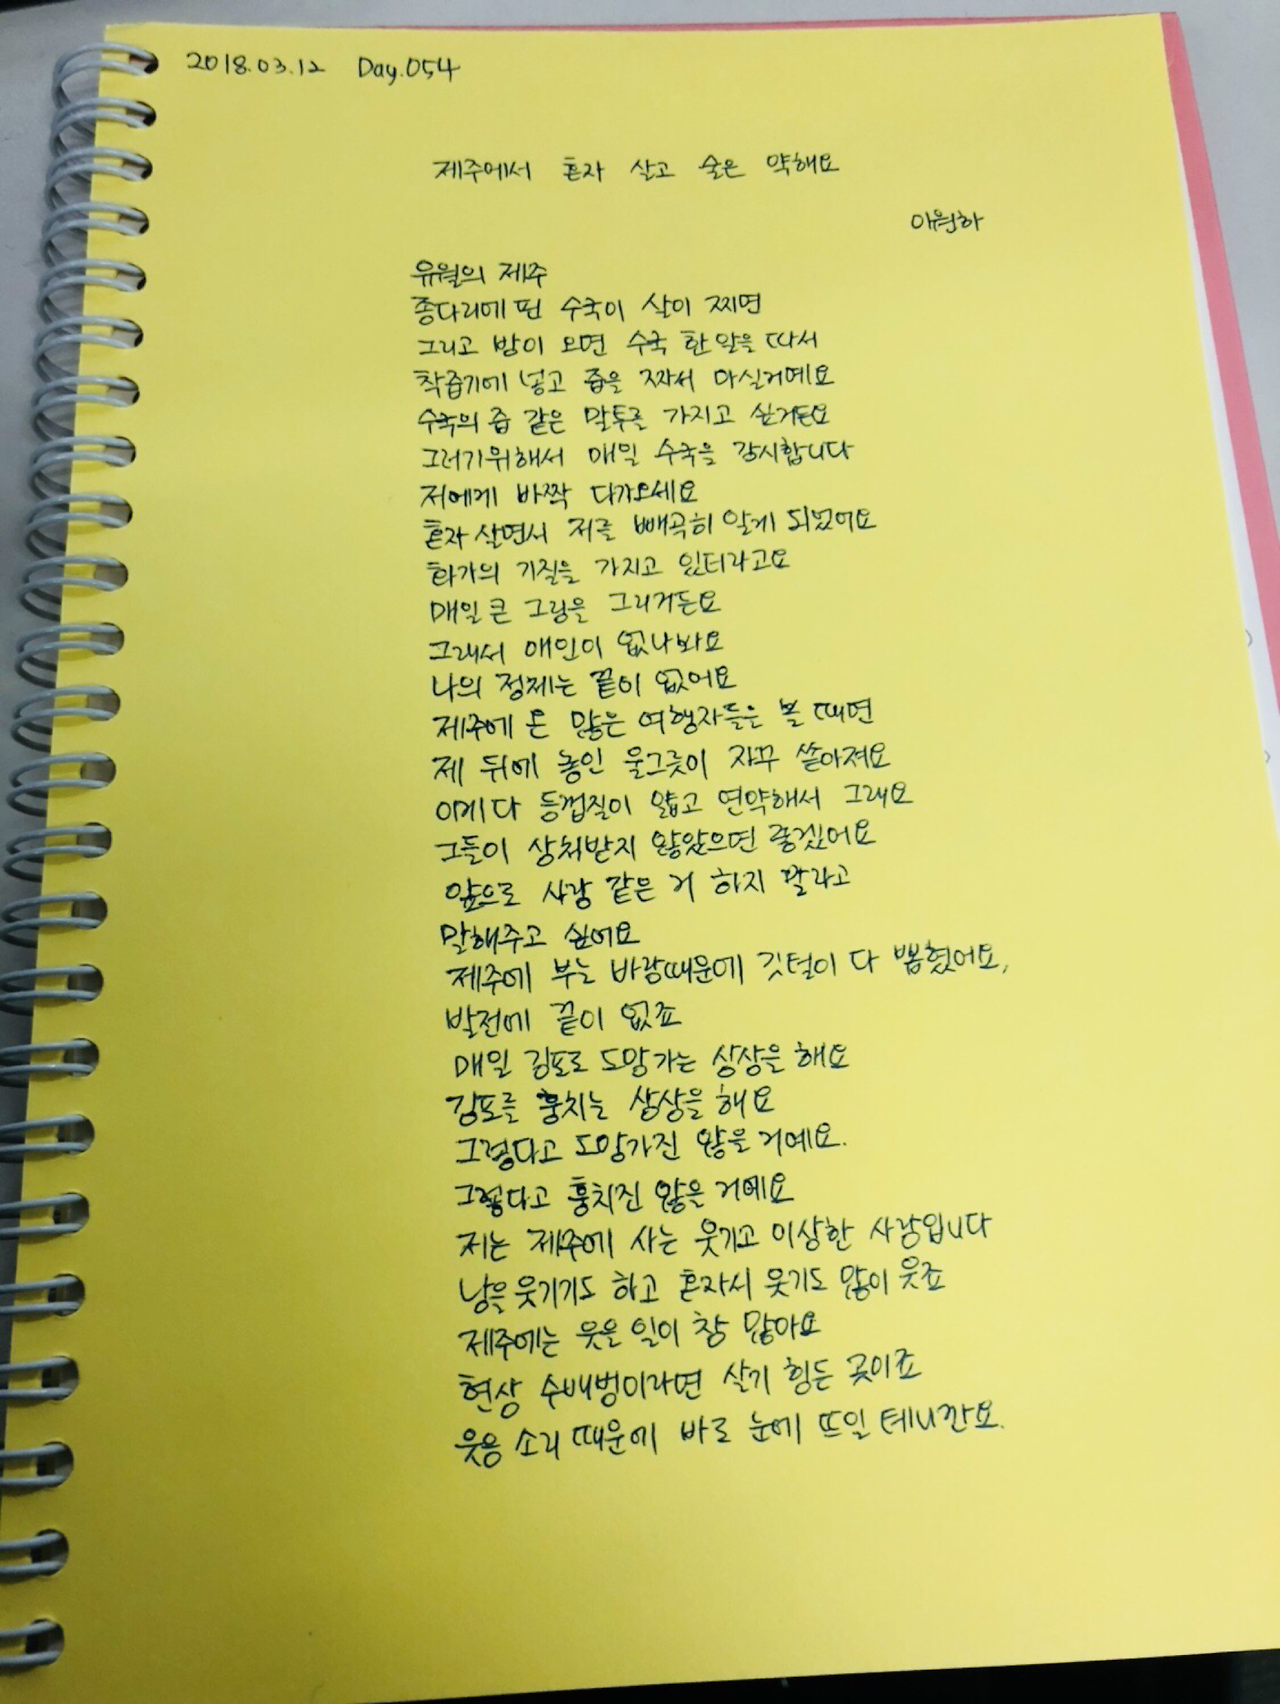 2018.03.12 Day.054
제주에서 혼자 살고 술은 약해요
이원하
유월의 제주
종다리에 핀 수국이 살이 찌면
그리고 밤이 오면 수국 한 알을 따서
착즙기에 넣고 즙을 짜서 마실거예요
수국의 즙 같은 말투를 가지고 싶거든요
그러기위해서 매일 수국을 감시합니다
저에게 바짝 다가오세요
혼자 살면서 저를 빼곡히 알게 되었어요
화가의 기질을 가지고 있더라고요
매일 큰 그림을 그리거든요
그래서 애인이 없나봐요
나의 정체는 끝이 없어요
제주에 온 많은 여행자들을 볼 때면
제 뒤에 놓인 물그릇이 자꾸 쏟아져요
이게 다 등껍질이 얇고 연약해서 그래요
그들이 상처받지 않았으면 좋겠어요
앞으로 사랑 같은 거 하지 말라고
말해주고 싶어요
제주에 부는 바람때문에 깃털이 다 뽑혔어요,
발전에 끝이 없죠
매일 김포로 도망가는 상상을 해요
김포를 훔치는 상상을 해요
그렇다고 도망가진 않을 거예요.
그렇다고 훔치진 않을 거예요
저는 제주에 사는 웃기고 이상한 사람입니다
남을 웃기기도 하고 혼자서 웃기도 많이 웃죠
제주에는 웃을 일이 참 많아요
현상 수배범이라면 살기 힘든 곳이죠
웃음 소리 때문에 바로 눈에 뜨일 테니깐요.